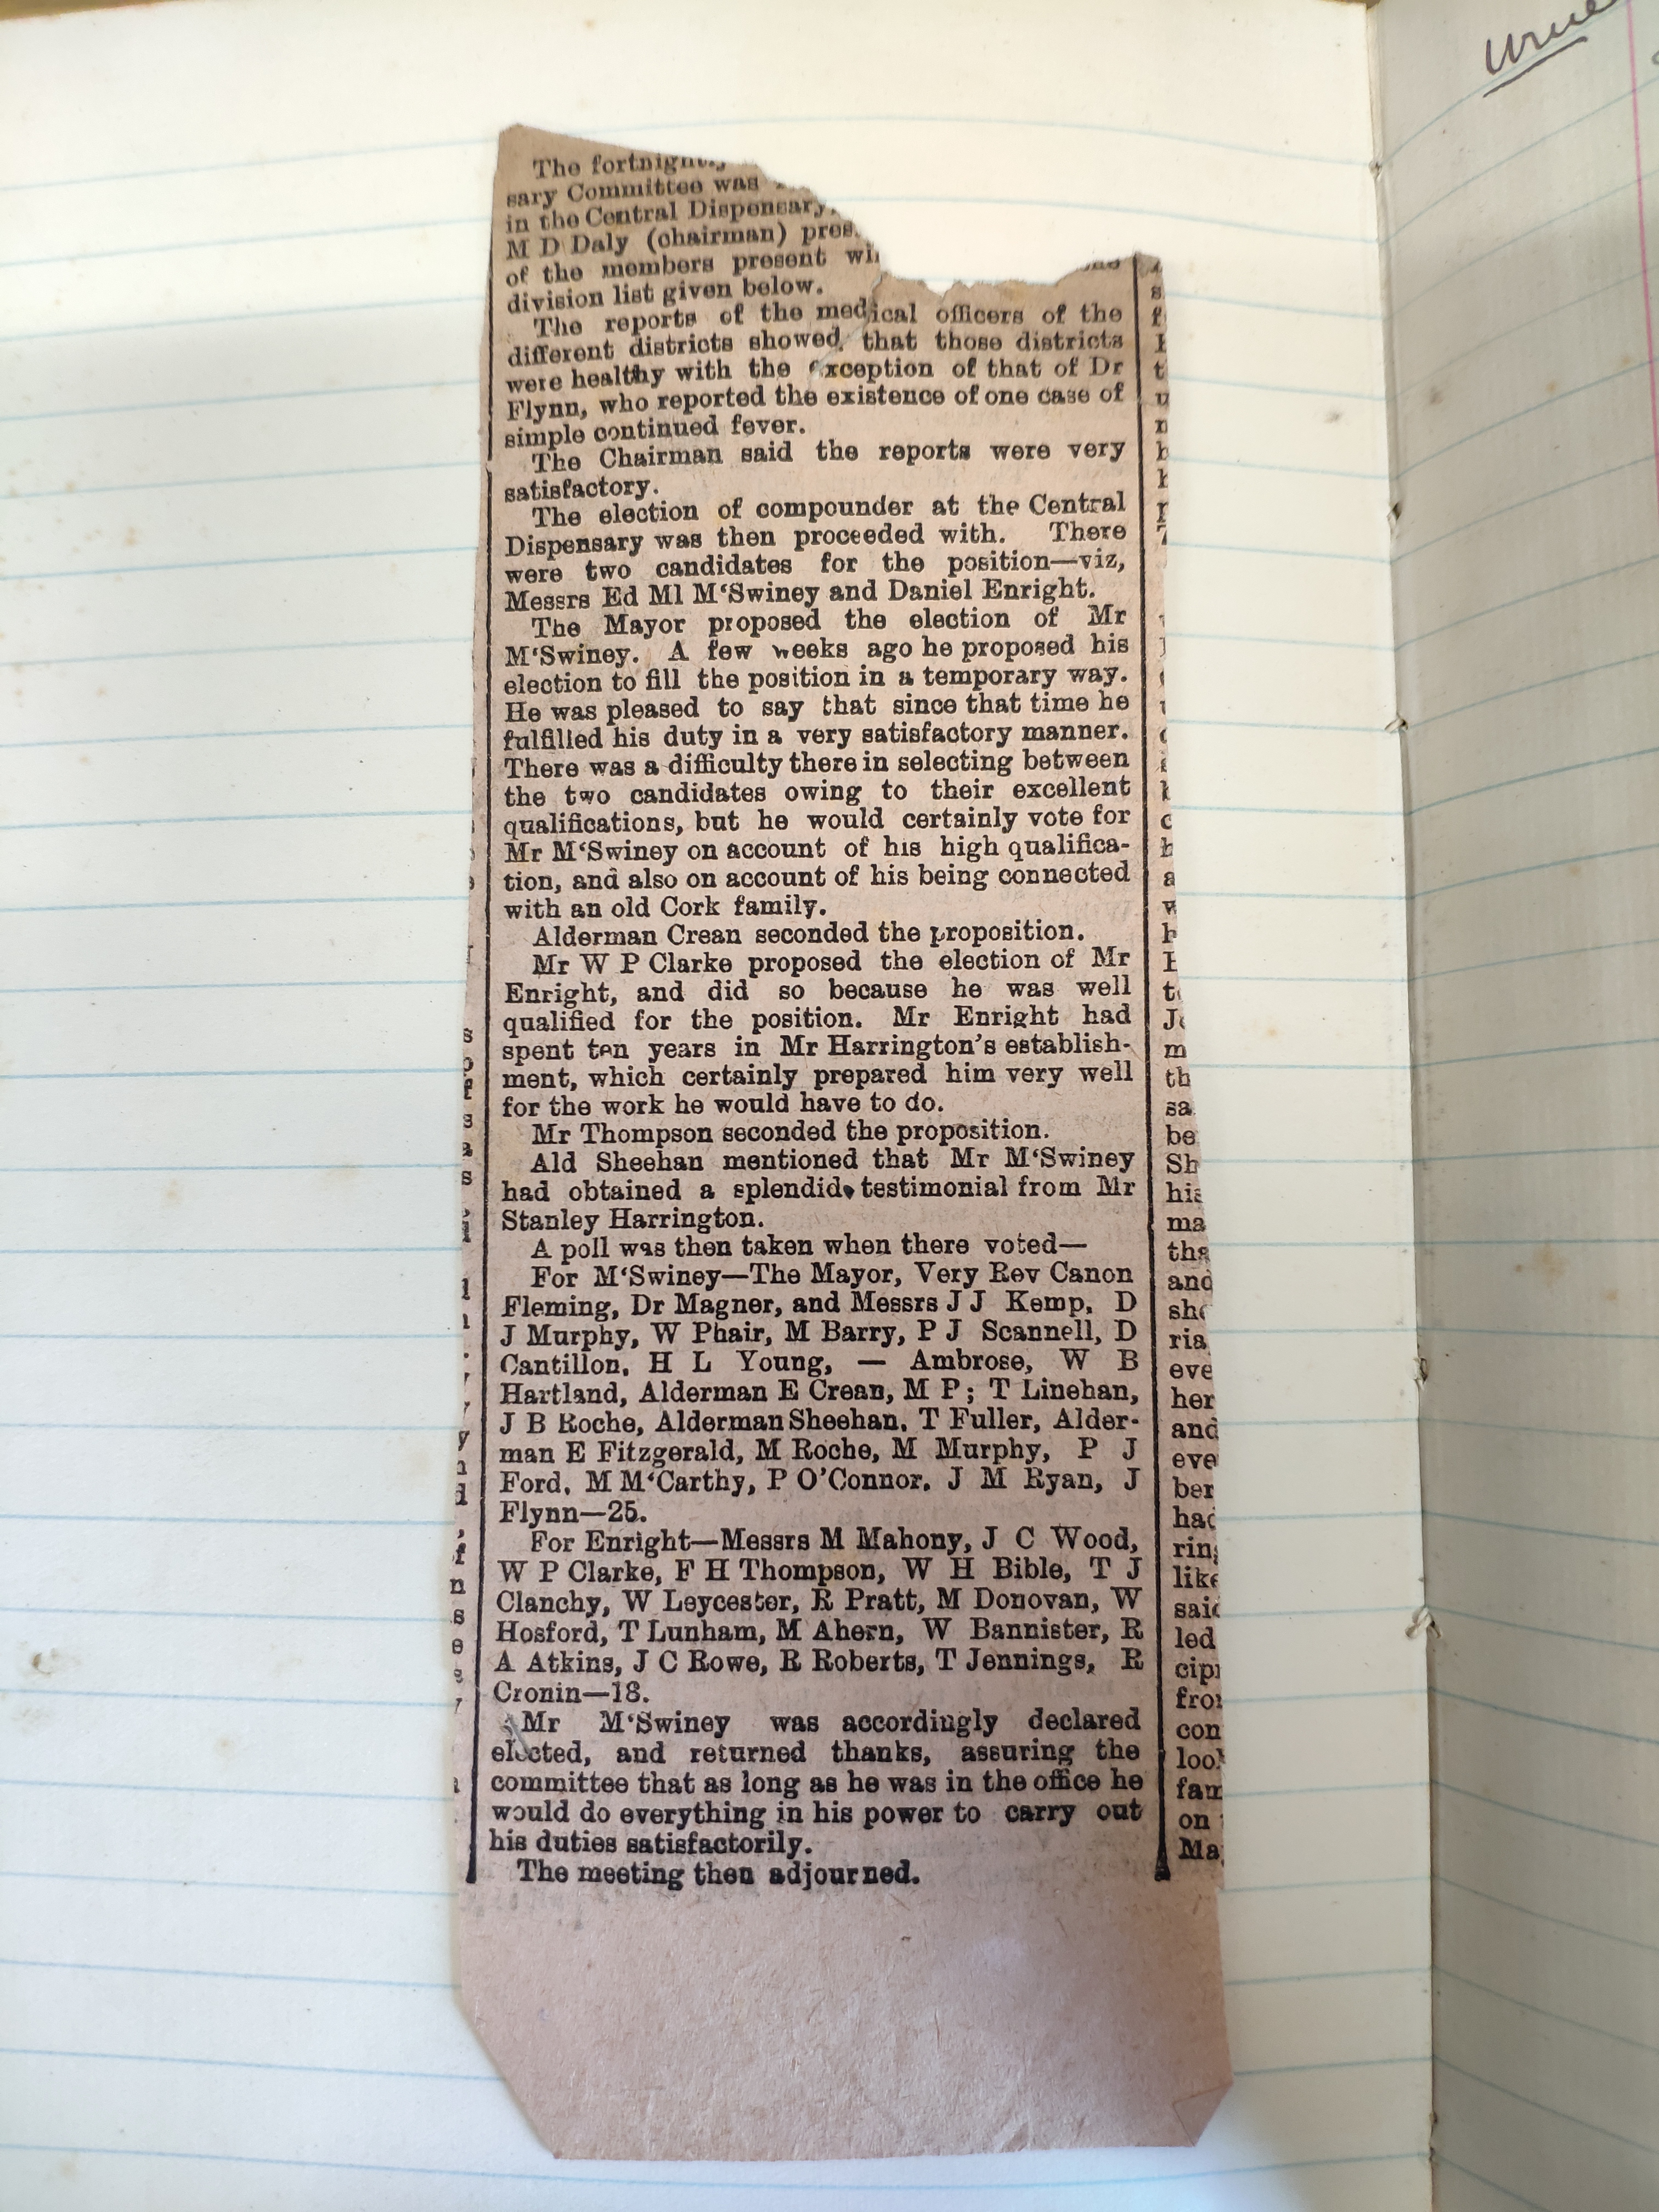 The fortnightly
sary Committee was
in the Central Dispensary,
M D Daly (chairman)
of the members present
division list given below.
The reports of the medical officers of the
different districts showed that those districts
were healthy with the exception of that of Dr
Flynn, who reported the existence of one case of
simple continued fever.
The Chairman said the reports were very
satisfactory.
The election of compounder at the Central
Dispensary was then proceeded with. There
were two candidates for the position—viz,
Messrs Ed Ml M‘Swiney and Daniel Enright.
The Mayor proposed the election of Mr
M‘Swiney. A few weeks ago he proposed his
election to fill the position in a temporary way.
He was pleased to say that since that time he
fulfilled his duty in a very satisfactory manner.
There was a difficulty there in selecting between
the two candidates owing to their excellent
qualifications, but he would certainly vote for
Mr M‘Swiney on account of his high qualifica-
tion, and also on account of his being connected
with an old Cork family.
Alderman Crean seconded the proposition.
Mr W P Clarke proposed the election of Mr
Enright, and did so because he was well
qualified for the position. Mr Enright had
spent ten years in Mr Harrington's establish-
ment, which certainly prepared him very well
for the work he would have to do.
Mr Thompson seconded the proposition.
Ald Sheehan mentioned that Mr M‘Swiney
had obtained a splendid testimonial from Mr
Stanley Harrington.
A poll was then taken when there voted—
For M‘Swiney—The Mayor, Very Rev Canon
Fleming, Dr Magner, and Messrs J J Kemp, D
J Murphy, W Phair, M Barry, P J Scannell, D
Cantillon, H L Young, — Ambrose, W B
Hartland, Alderman E Crean, M P; T Linehan,
J B Roche, Alderman Sheehan, T Fuller, Alder-
man E Fitzgerald, M Roche, M Murphy, P J
Ford, M M‘Carthy, P O'Connor, J M Ryan, J
Flynn—25.
For Enright—Messrs M Mahony, J C Wood,
W P Clarke, F H Thompson, W H Bible, T J
Clanchy, W Leycester, R Pratt, M Donovan, W
Hosford, T Lunham, M Ahern, W Bannister, R
A Atkins, J C Rowe, R Roberts, T Jennings, R
Cronin—18.
Mr M‘Swiney was accordingly declared
elected, and returned thanks, assuring the
committee that as long as he was in the office he
would do everything in his power to carry out
his duties satisfactorily.
The meeting then adjourned.